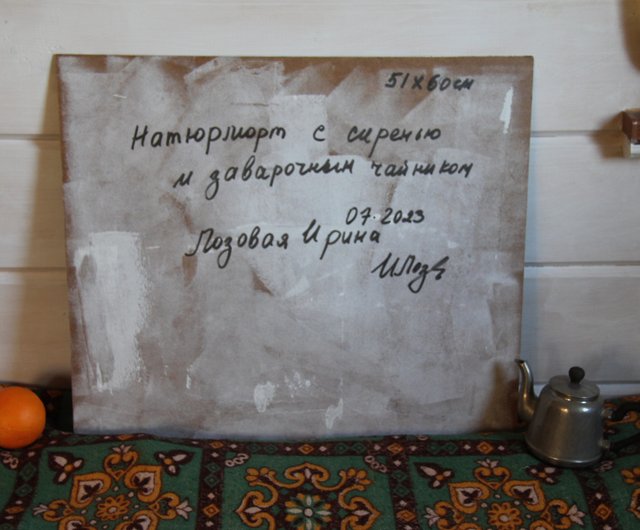 51х60см
Натюрморт с сиренью
и заварочным чайником
07.2023
Лозовая Ирина
ИЛоз